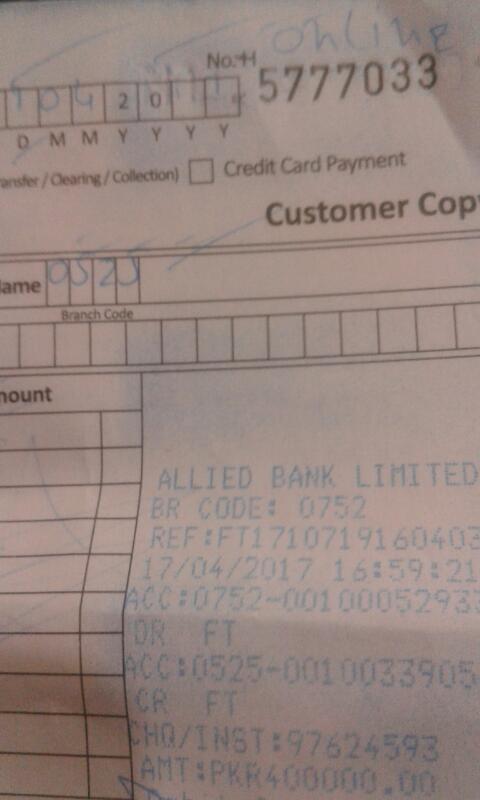 online
No. H 5777033
04 20
D M M Y Y Y Y
ansfer / Clearing / Collection) Credit Card Payment
Customer Copy
lame 0525
Branch Code
nount
ALLIED BANK LIMITED
BR CODE: 0752
REF:FT1710719160403
17/04/2017 16:59:21
ACC:0752-0010005293
DR FT
ACC:0525-0010033905
CR FT
CHQ/INST:97624593
AMT:PKR400000.00